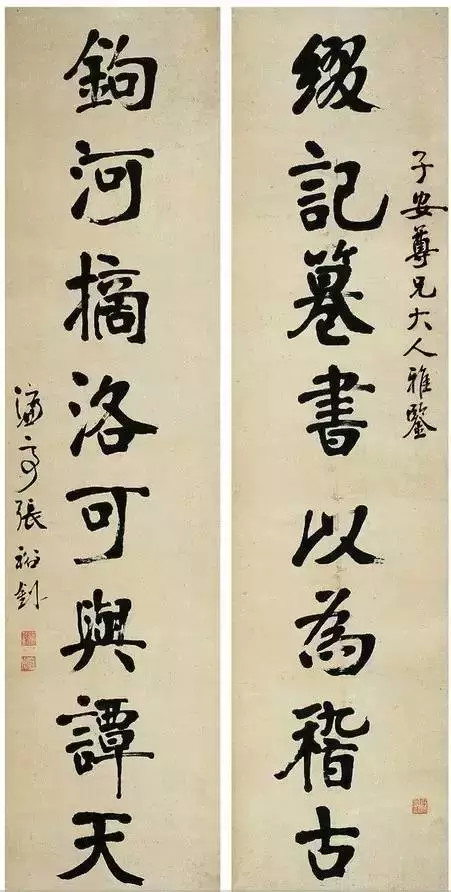 子安尊兄大人雅鑒
綴記篹書以為稽古
鉤河摘洛可與譚天
濂亭張裕釗